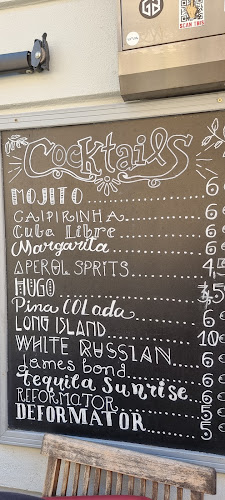 SCAN THIS
Cocktails
MOJITO 6
CAIPIRINHA 6
Cuba Libre 6
Margarita 6
APEROL SPRITS
HUGO
Pina COLada 6
LONG ISLAND 10
WHITE RUSSIAN 6
James bond 6
tequila Sunrise 6
REFORMATOR 5
DEFORMATOR 5